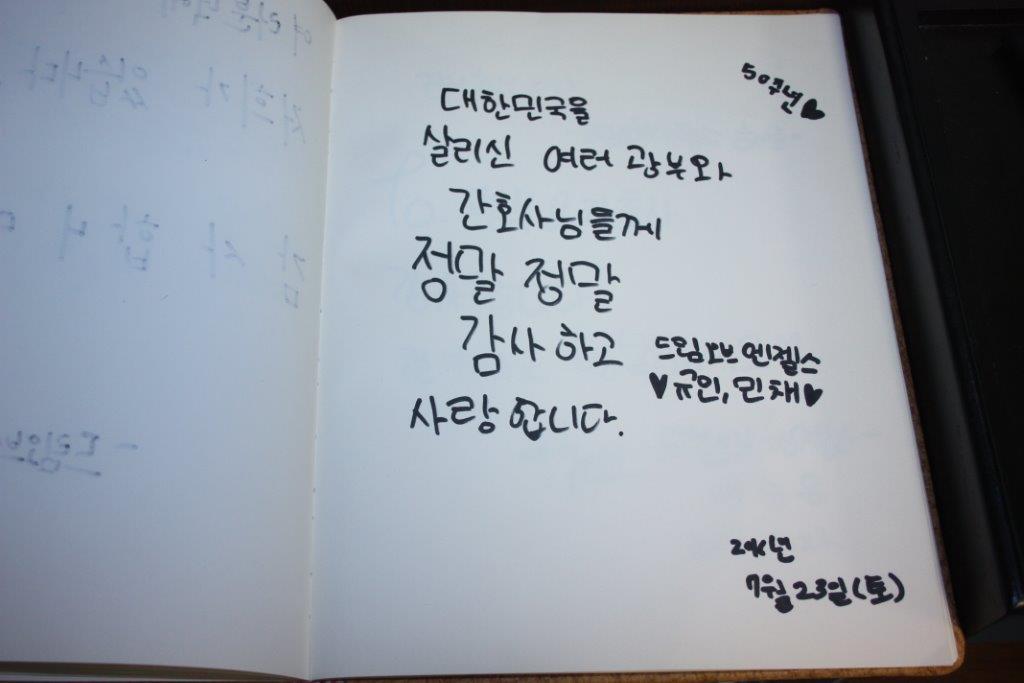 50주년♥
대한민국을
살리신 여러 광부와
간호사님들께
정말 정말
감사하고
사랑합니다.
드림오브엔젤스
♥규인, 민채♥
2016년
7월 23일(토)